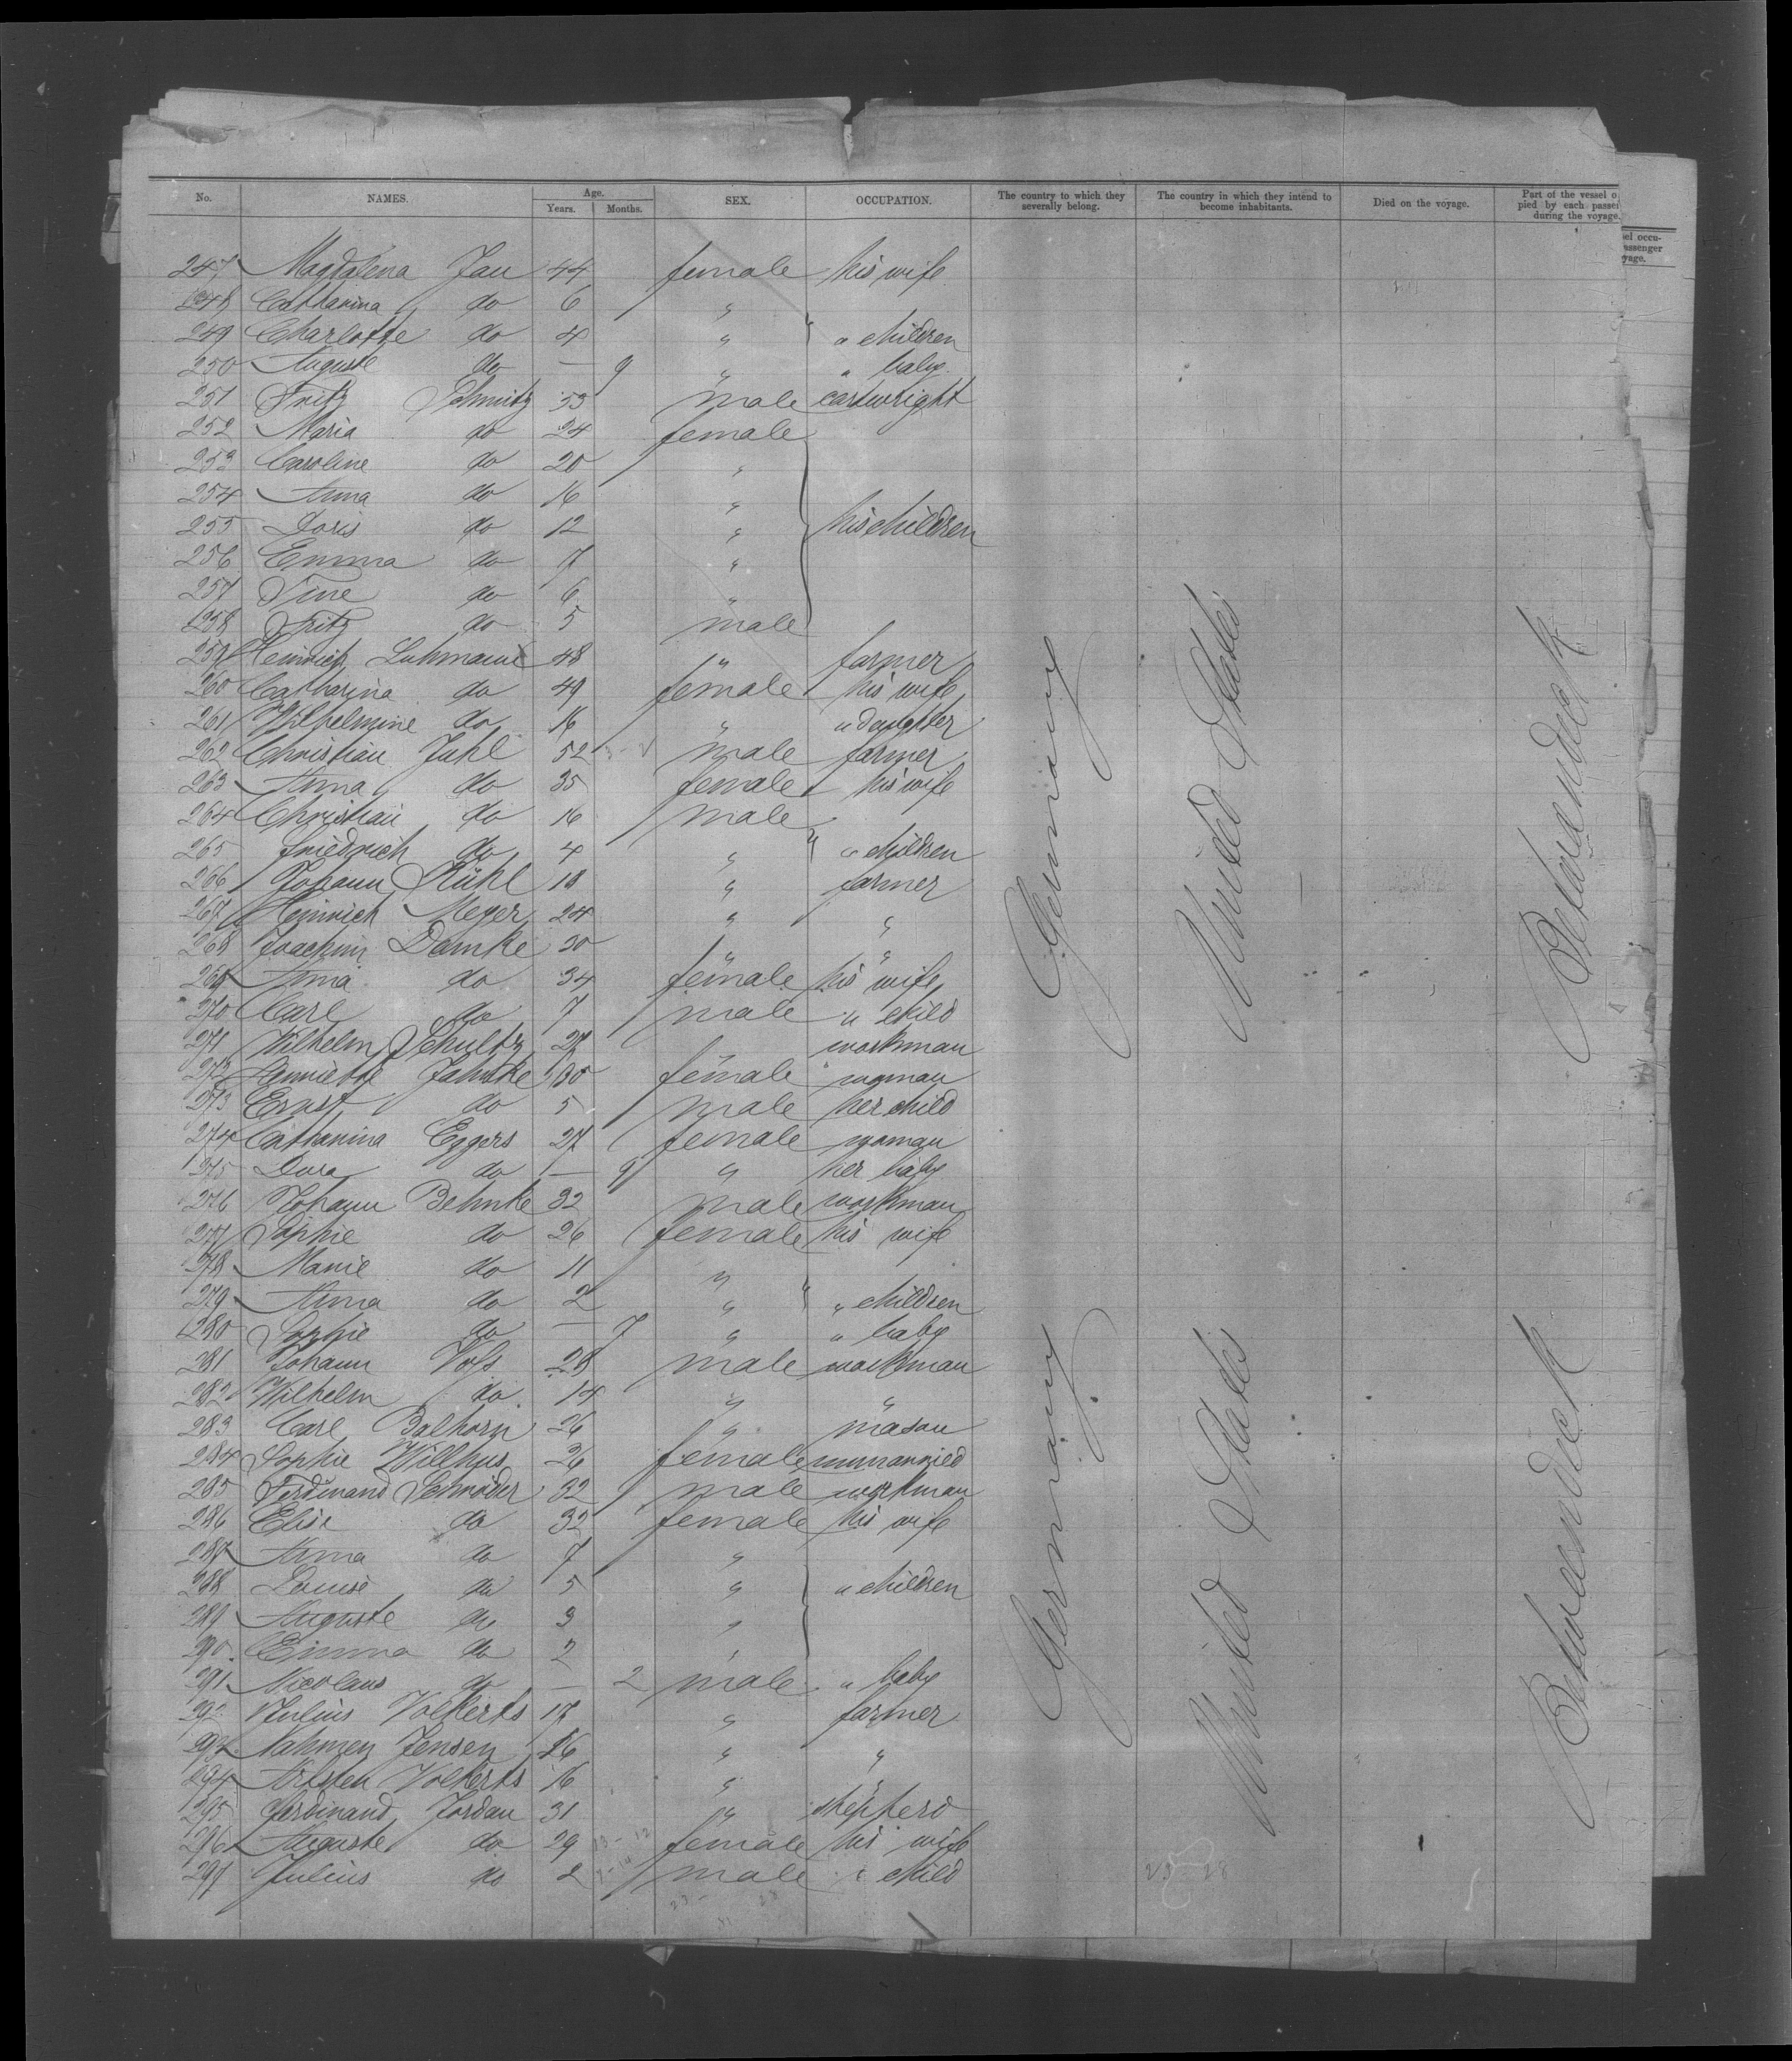 No. NAMES. Age. Years. Months. SEX. OCCUPATION. The country to which they severally belong. The country in which they intend to become inhabitants. Died on the voyage. Part of the vessel o pied by each passe during the voyage.
el occu-
assenger
yage.
247 Magdalena Jau 44 female his wife
248 Catharina do 6 "
249 Charlotte do 4 " " children
250 Auguste do — 9 " " baby
251 Fritz Schmitz 53 male cartwright
252 Maria do 24 female
253 Caroline do 20 "
254 Anna do 16 "
255 Doris do 12 " his children
256 Emma do 7 "
257 Tine do 6 "
258 Fritz do 5 male
259 Heinrich Luhmann 48 " farmer
260 Catharina do 49 female his wife
261 Wilhelmine do 16 " " daughter
262 Christian Juhl 52 male farmer
263 Anna do 35 female his wife
264 Christian do 16 male
265 Friedrich do 4 " " children
266 Johann Rühl 18 " farmer
267 Heinrich Meyer 24 " "
268 Joachim Damke 30 " "
269 Anna do 34 female his wife
270 Carl do 7 male " child
271 Wilhelm Schultz 27 " workman
272 Henriette Jahnke 30 female woman
273 Ernst do 5 male her child
274 Catharina Eggers 27 female woman
275 Dora do — 9 " her baby
276 Johann Behnke 32 male workman
277 Sophie do 26 female his wife
278 Marie do 11 "
279 Anna do 2 " " children
280 Sophie do — 7 " " baby
281 Johann Vofs 28 male workman
282 Wilhelm do 14 " "
283 Carl Balhorn 26 " mason
284 Sophie Willhus 26 female unmarried
285 Ferdinand Schröder 32 male workman
286 Elise do 32 female his wife
287 Anna do 7 "
288 Louise do 5 " " children
289 Auguste do 3 "
290 Emma do 2 "
291 Nicolaus do — 2 male " baby
292 Julius Volkerts 17 " farmer
293 Nahmen Jensen 16 " "
294 Volkerts 16 " "
295 Ferdinand Jordan 31 " shepherd
296 Auguste do 29 female his wife
297 Julius do 2 male " child
Germany
United States
Betweendeck
Germany
United States
Betweendeck